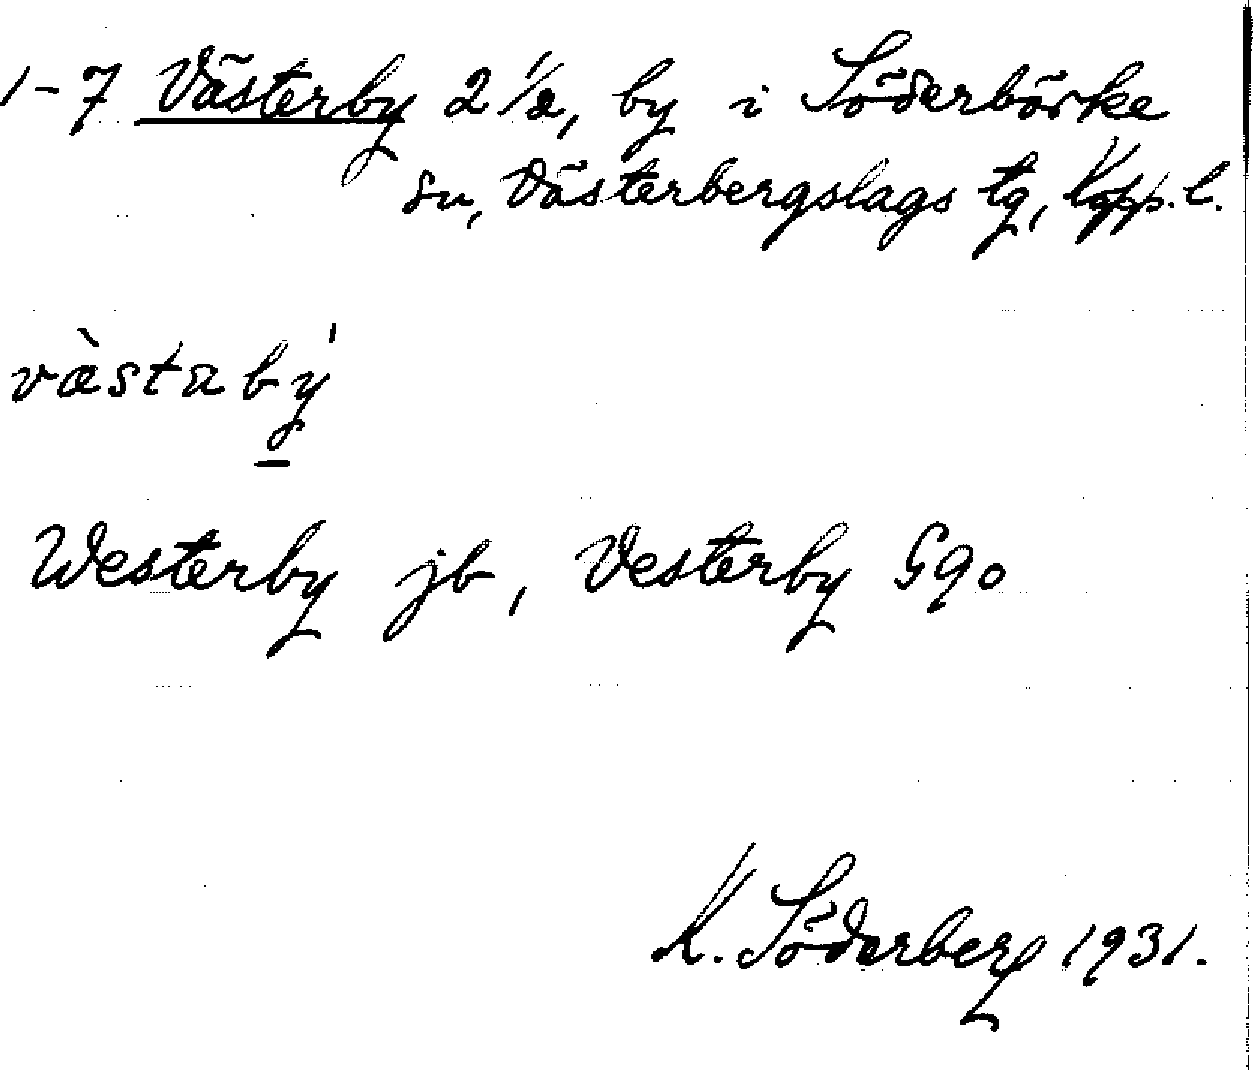 1-7 Västerby 2 1/2, by i Söderbärke
sn, Västerbergslags tg, Kopp. l.
vàstabý
Westerby jb, Vesterby G90
K. Söderberg 1931.